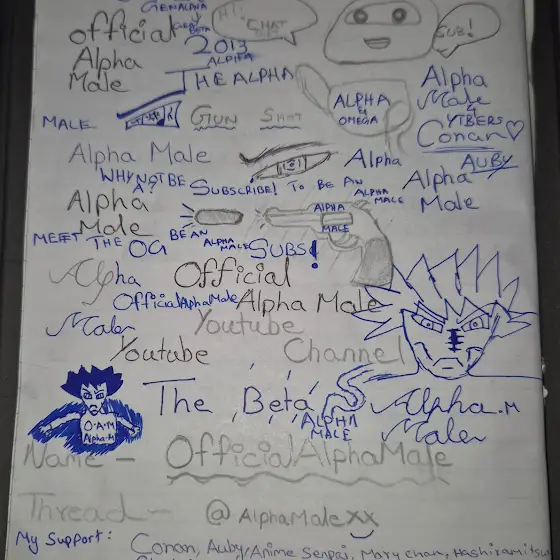 GENALPHA
Y
GEN BETA
Hi!
CHAT
SUB!
Official
2013
Alpha
Male
ALPHA
THE ALPHA
MALE
GUN SHOT
ALPHA
&
OMEGA
Alpha
Male
&
YTBERS
Conan
AUBY
Alpha Male
Alpha
Alpha
Male
WHY NOT BE
A?
SUBSCRIBE! TO BE AN
ALPHA
MALE
Alpha
Male
ALPHA
MALE
MEEFT THE OG
BE AN
ALPHA
MALE
SUBS!
Alpha
Official
OfficialAlphaMale
Alpha Male
Maler
Youtube
Youtube
Channel
The Beta
ALPHA
MALE
Alpha.M
Maler
O.A.M
Alpha-M
Name - OfficialAlphaMale
Thread - @AlphaMalexx
My Support: Conan, Auby/Anime Senpai, Mary chan, Hashiramitsu